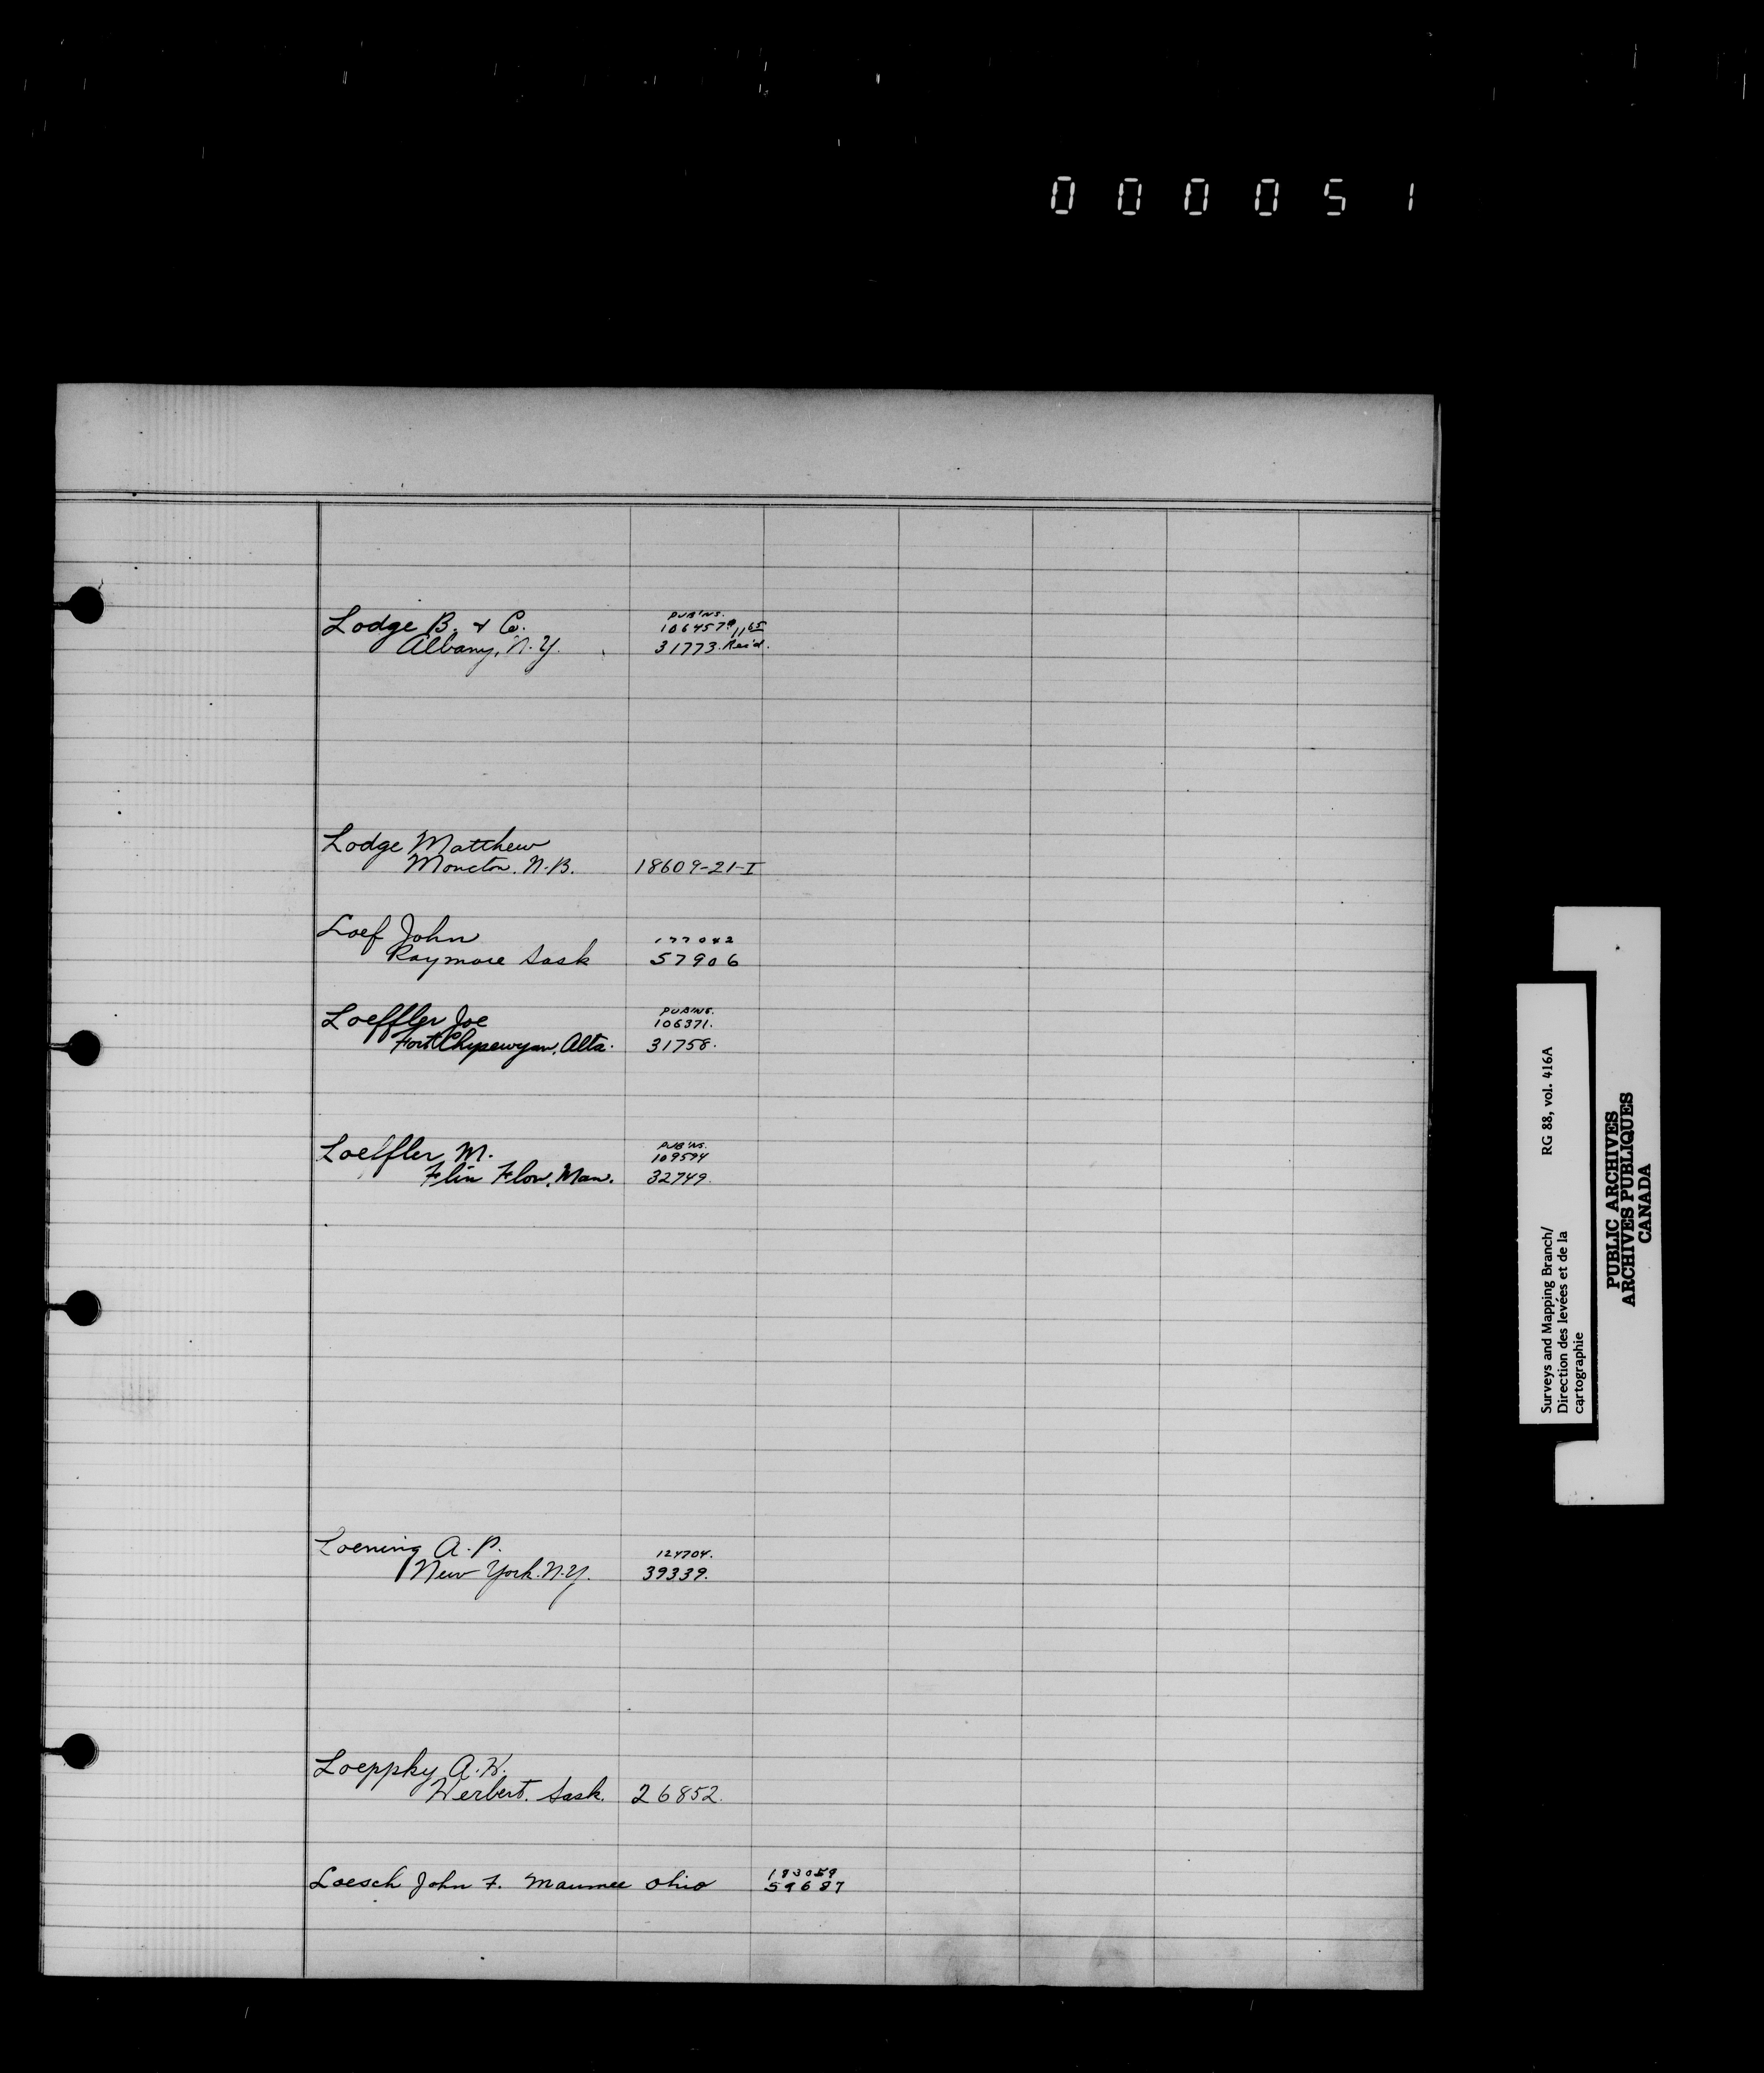 000051
Lodge B. & Co.
Albany, N.Y.
PUB'NS.
31773. Rec'd.
Lodge Matthew
Moncton. N.B.
18609-21-I
Loef John
Raymore Sask
177042
57906
Loeffler Joe
Fort Chypewyan, Alta.
PUB'NS.
106371.
31758.
Loeffler M.
Flin Flon, Man.
PUB'NS.
109594
32749.
Loening A.P.
New York. N.Y.
124704.
39339.
Loeppky A.H.
Herbert. Sask.
26852.
Loesch John F. Maumee Ohio
183059
59687
Surveys and Mapping Branch/ RG 88, vol. 416A
Direction des levées et de la
cartographie
PUBLIC ARCHIVES
ARCHIVES PUBLIQUES
CANADA